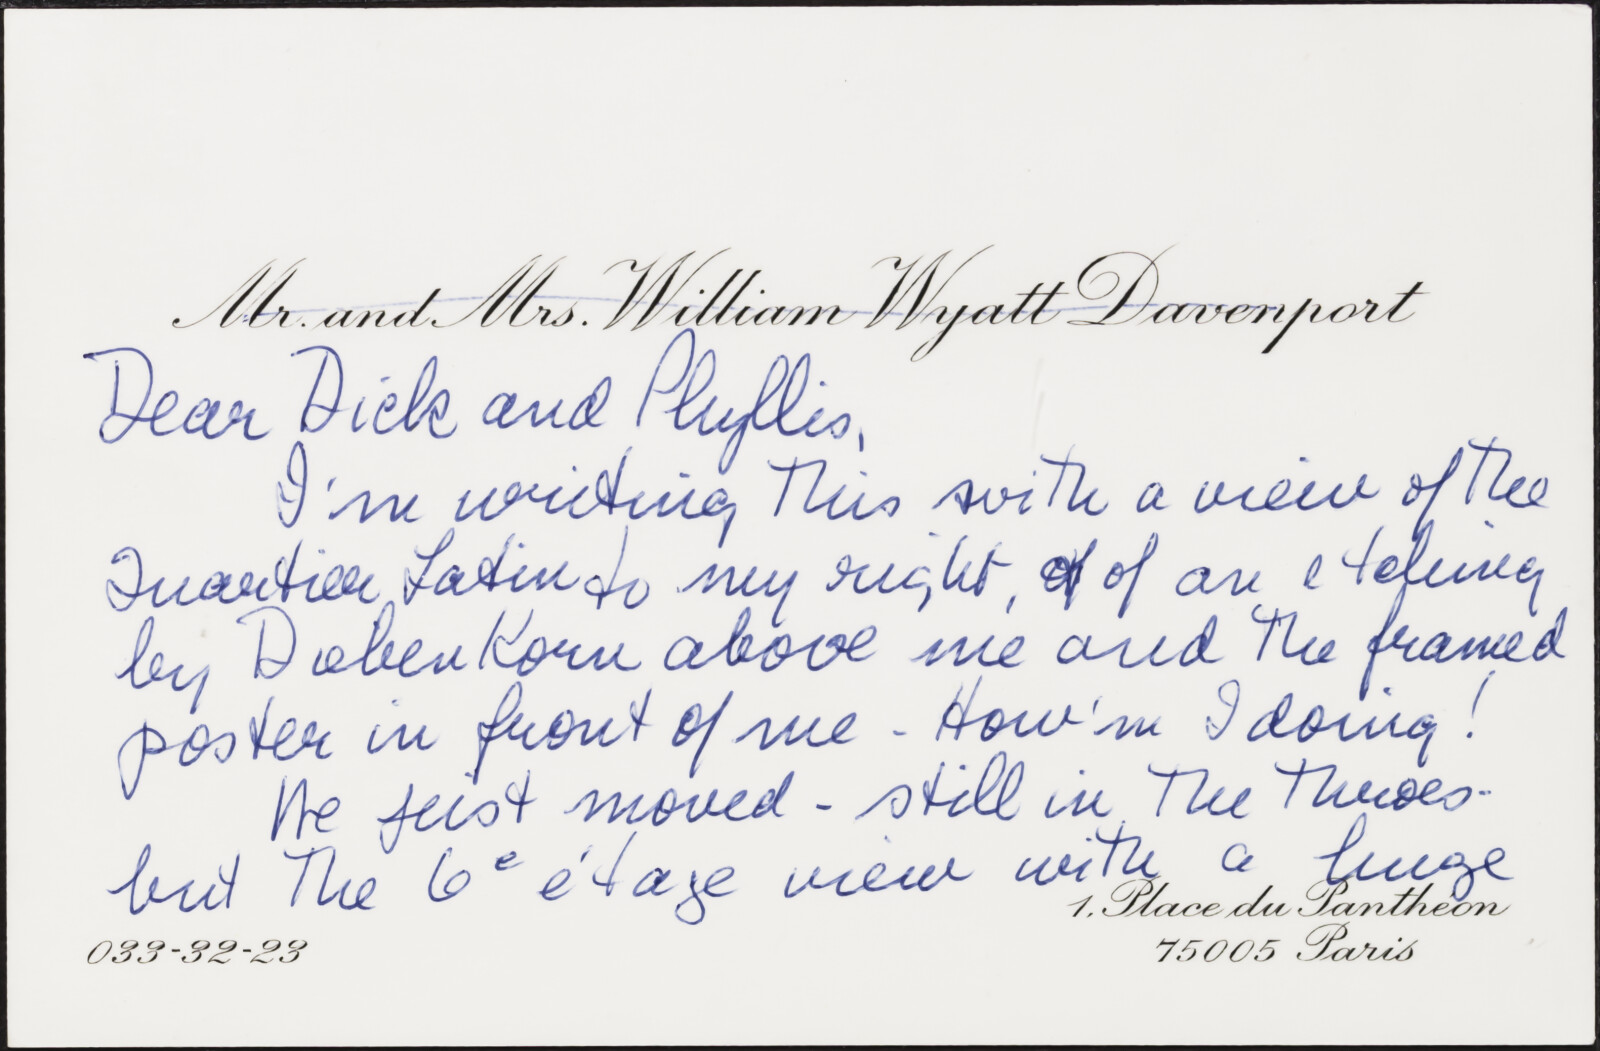 Mr. and Mrs. William Wyatt Davenport
Dear Dick and Phyllis,
I'm writing this with a view of the
Quartier Latin to my right, of of an etching
by Diebenkorn above me and the framed
poster in front of me - How'm I doing!
We just moved - still in the throes -
but the 6e étage view with a huge
1, Place du Panthéon
033-32-23
75005 Paris